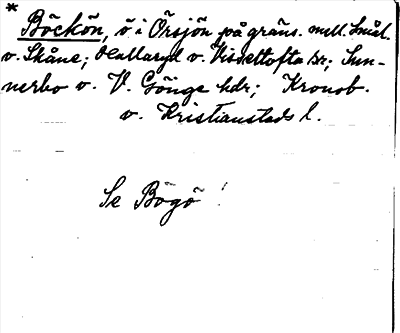 * Böckön, ö i Örsjön på gräns. mell. Smål.
o. Skåne; Hallaryd o. Visseltofta sr; Sun-
nerbo o. V. Göinge hdr; Kronob.
o. Kristianstads l.
Se Bögö !